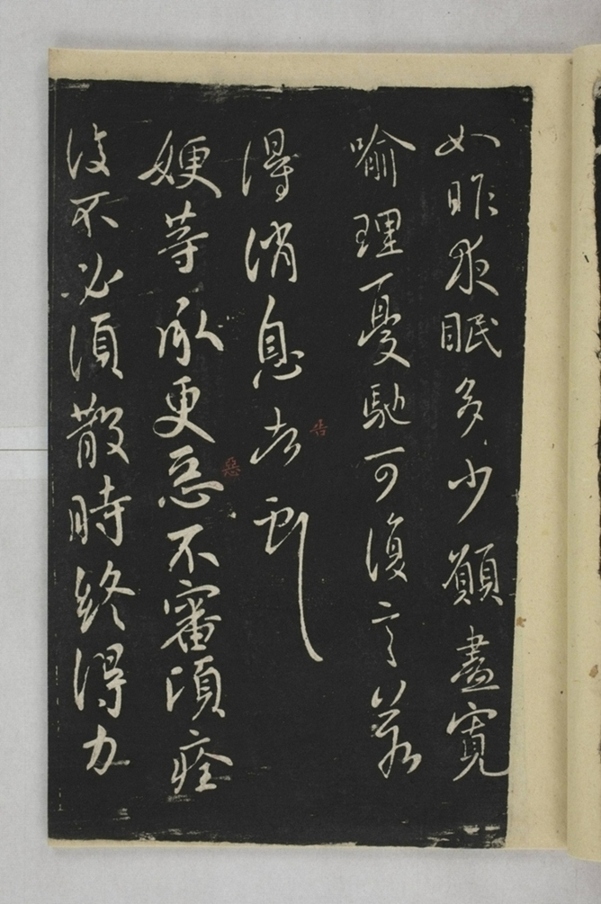 如昨夜眠多少願盡寬
喻理憂馳可復言若
得消息告
嫂等承更惡不審須痊
復不必須散時終得力
告
惡